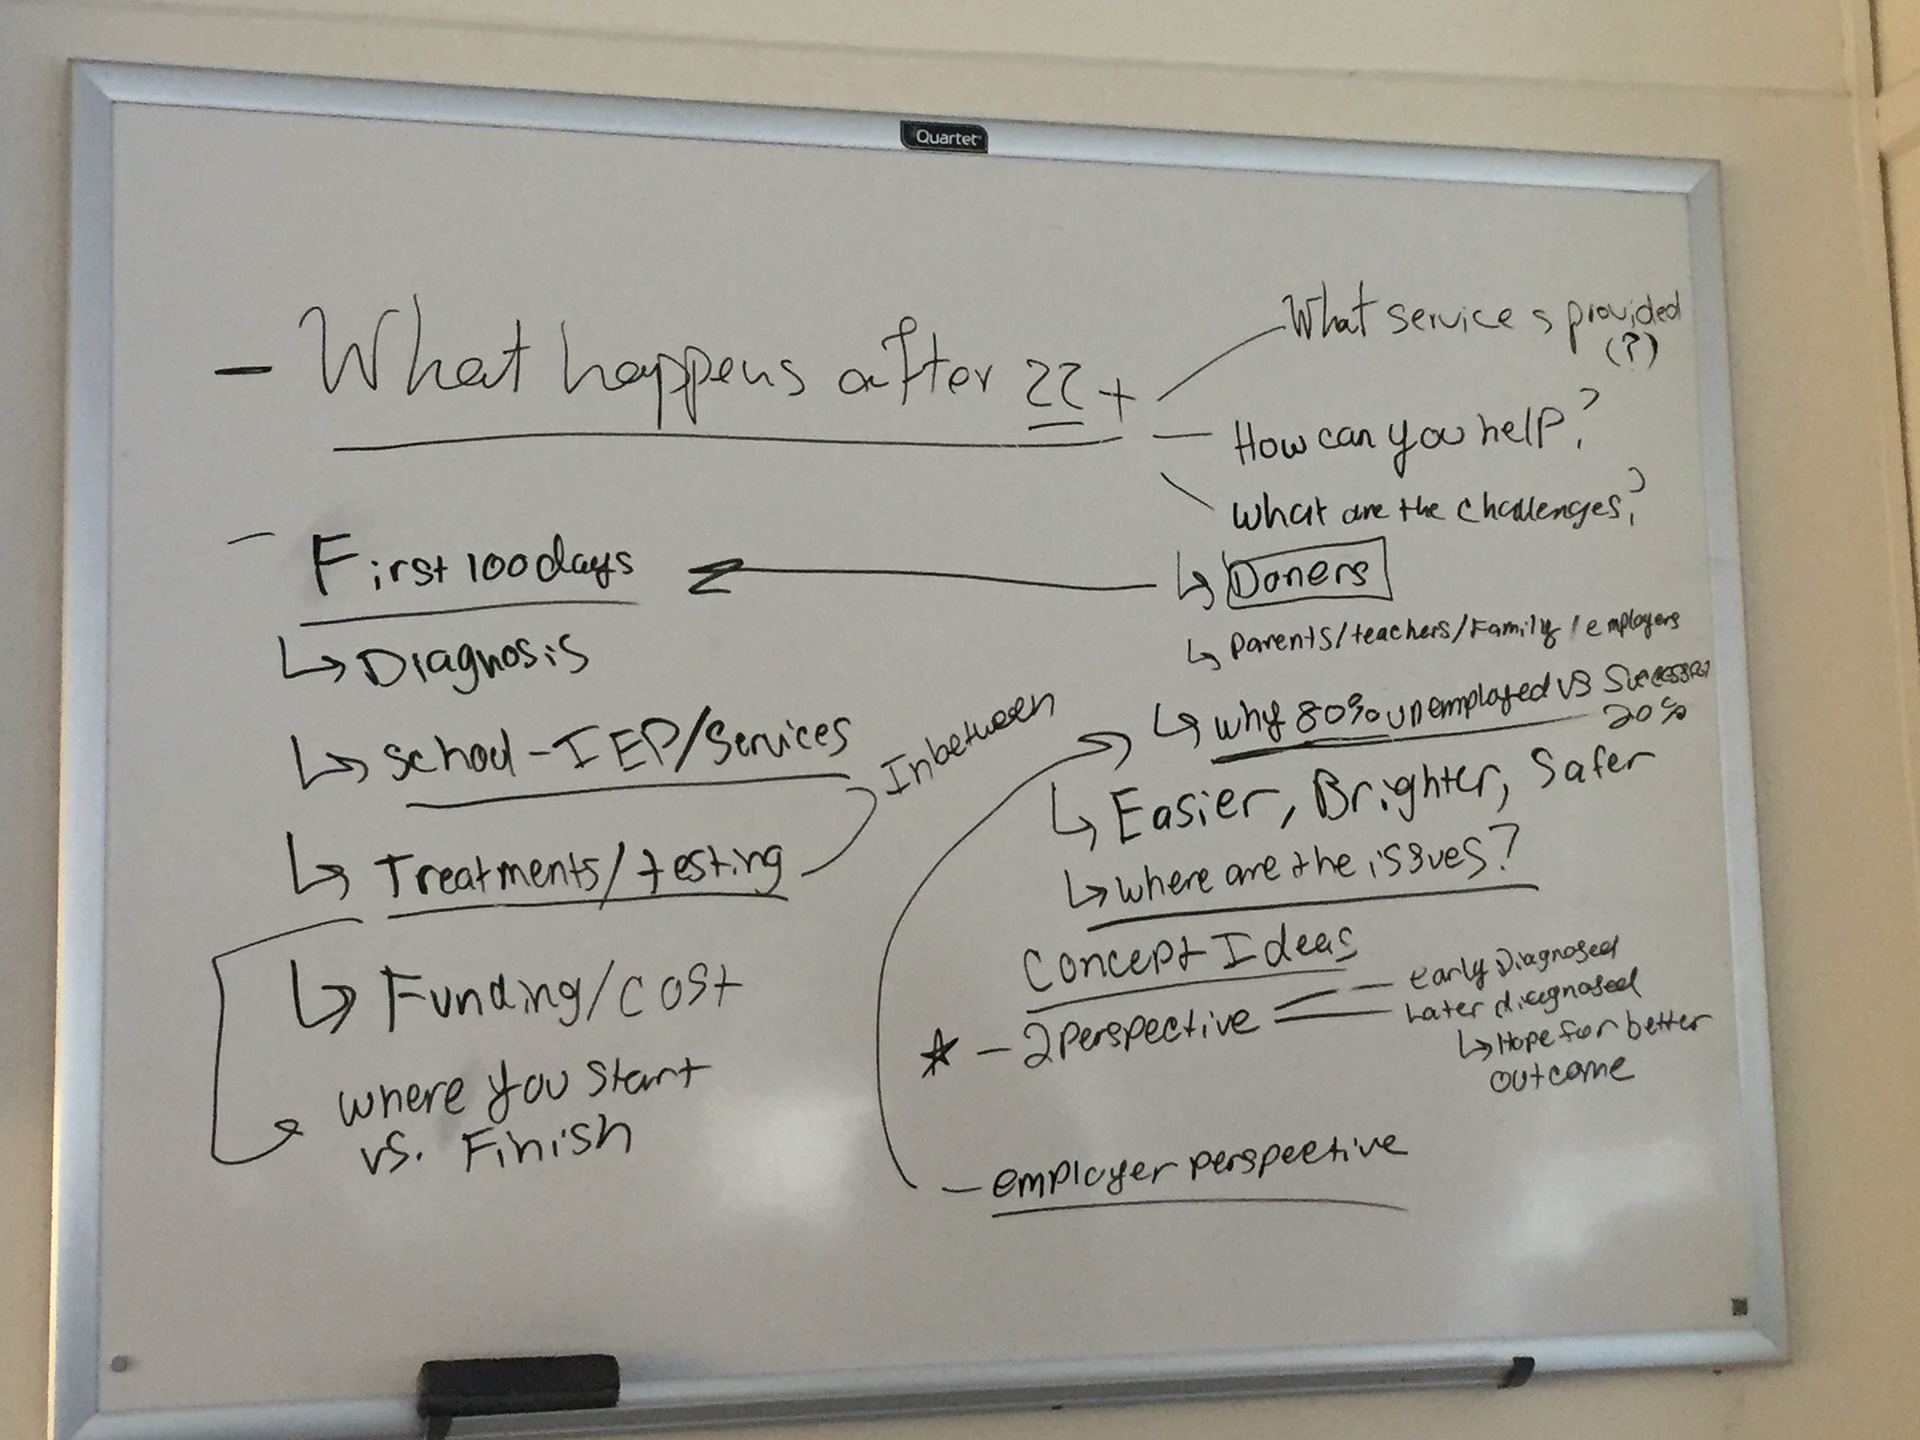 Quartet
- What happens after 22+
What services provided
(?)
How can you help?
What are the challenges?
- First 100days
↳ Diagnosis
↳ school - IEP/Services
↳ Treatments/testing
Inbetween
↳ Funding/cost
where you start
vs. Finish
↳ Doners
↳ Parents/teachers/Family/employers
↳ why 80% unemployed vs Successful
20%
↳ Easier, Brighter, Safer
↳ where are the issues?
Concept Ideas
★ - 2 Perspective
early Diagnosed
Later diagnosed
↳ Hope for better
outcome
- employer perspective